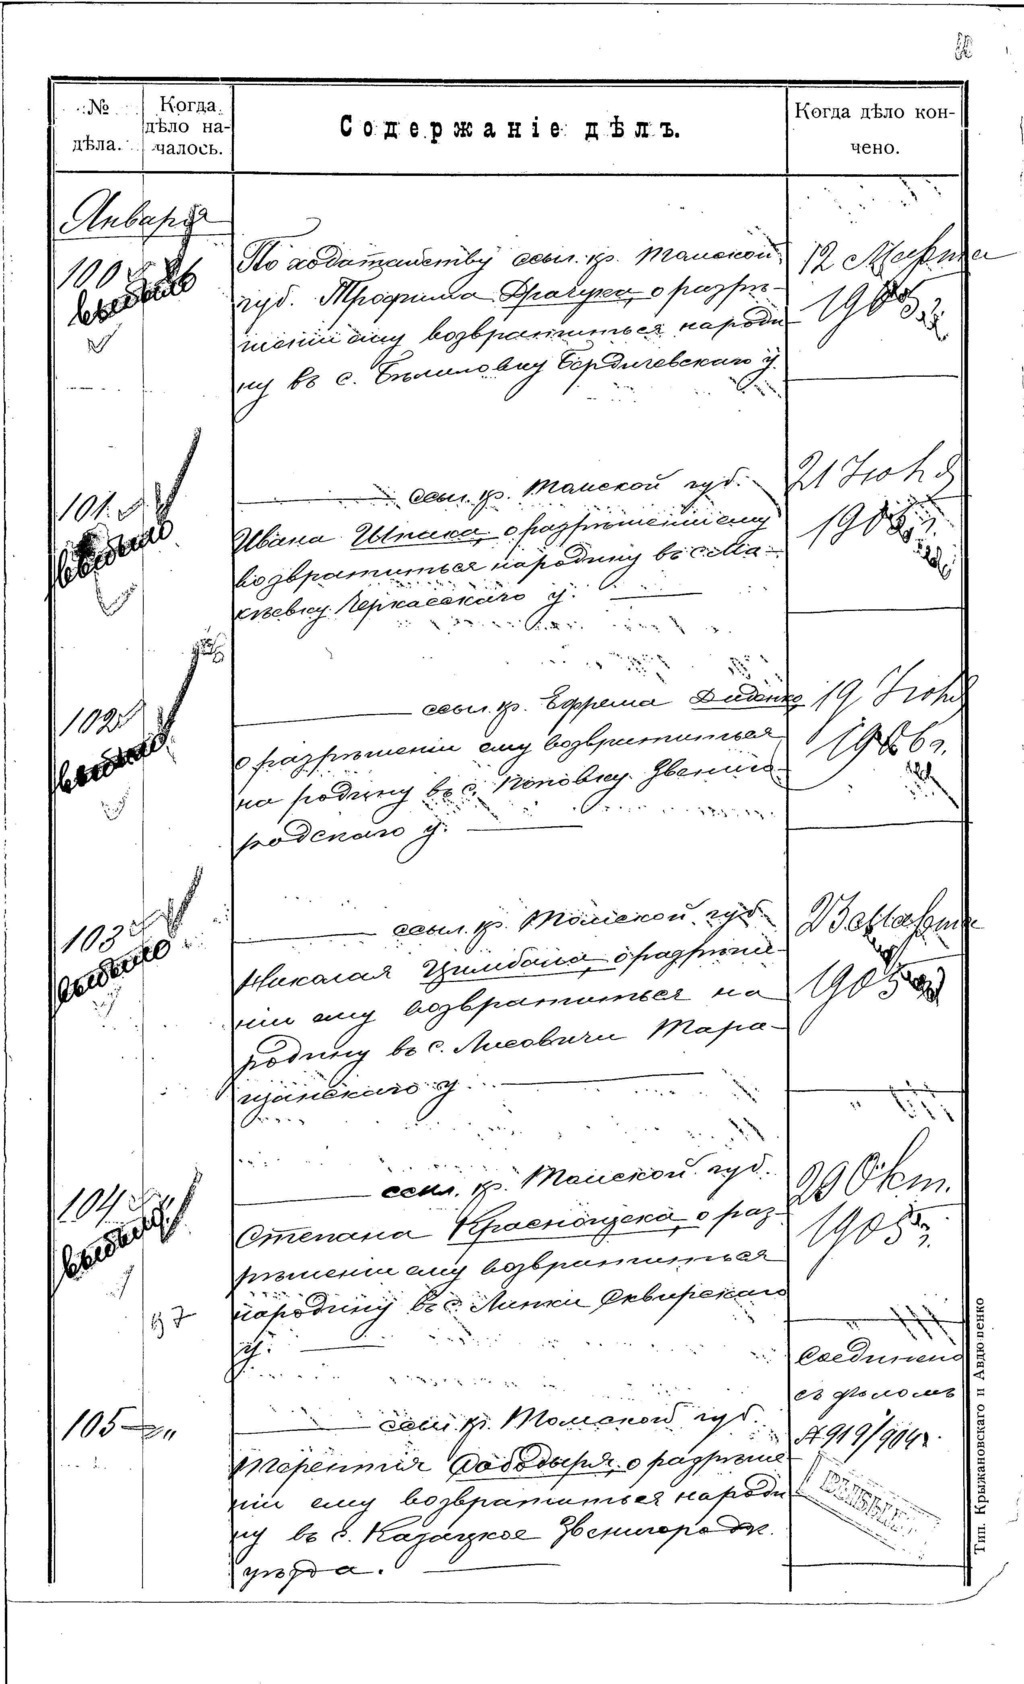 № дѣла.
Когда дѣло на-
чалось.
Содержаніе дѣлъ.
Когда дѣло кон-
чено.
Января
100
выбыло
По ходатайству ссыл. кр. Томской
губ. Трофима Драчука, о разрѣ-
шеніи ему возвратиться на роди-
ну въ с. Бѣлиловку Бердичевскаго у.
12 Марта
1905 г.
101
выбыло
ссыл. кр. Томской губ.
Ивана Шпака, о разрѣшеніи ему
возвратиться на родину въ с. Ма-
кѣевку Черкасскаго у.
21 Іюня
1905 г.
102
выбыло
ссыл. кр. Ефрема Диденко
о разрѣшеніи ему возвратиться
на родину въ с. Поповку Звениго-
родскаго у.
19 Іюня
1906 г.
103
выбыло
ссыл. кр. Томской губ.
Николая Цимбала, о разрѣше-
ніи ему возвратиться на
родину въ с. Лисовичи Тара-
щанскаго у.
23 Марта
1905
104
выбыло
97
ссыл. кр. Томской губ.
Степана Красношека, о раз-
рѣшеніи ему возвратиться
на родину въ с. Липки Сквирскаго
у.
29 Окт.
1905 г.
105 "
ссыл. кр. Томской губ.
Терентія Слободыря, о разрѣше-
ніи ему возвратиться на роди-
ну въ с. Казацкое Звенигородск.
уѣзда.
Соединено
съ дѣломъ
№ 919/904 г.
ВЫБЫЛ
Тип. Крыжановскаго и Авдюшенко